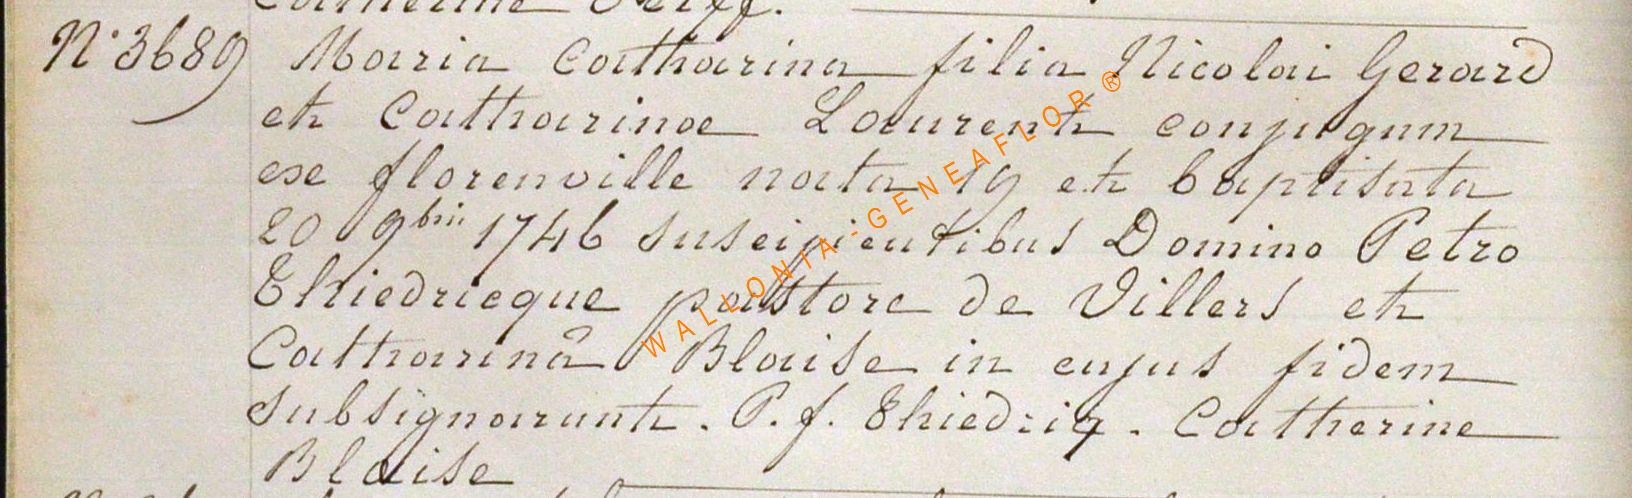 Catherine
N° 3689 Maria Catharina filia Nicolai Gerard
et Catharinae Laurent conjugum
ex florenville nata 19 et baptisata
20 9bris 1746 suscipientibus Domino Petro
Thiedricque pastore de Villers et
Catharinâ Blaise in cujus fidem
subsignarunt. P. f. Thiedriq. Catherine
Blaise
WALLONIA-GENEAFLOR®